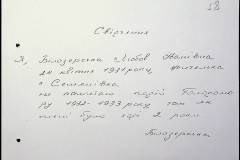 58
Свідчення
Я, Білозерська Любов Іванівна
24 квітня 1931 року, жителька
с. Семенівка
не пам'ятаю подій Голодомо
ру 1932-1933 року так як
мені було тоді 2 роки
Білозерська